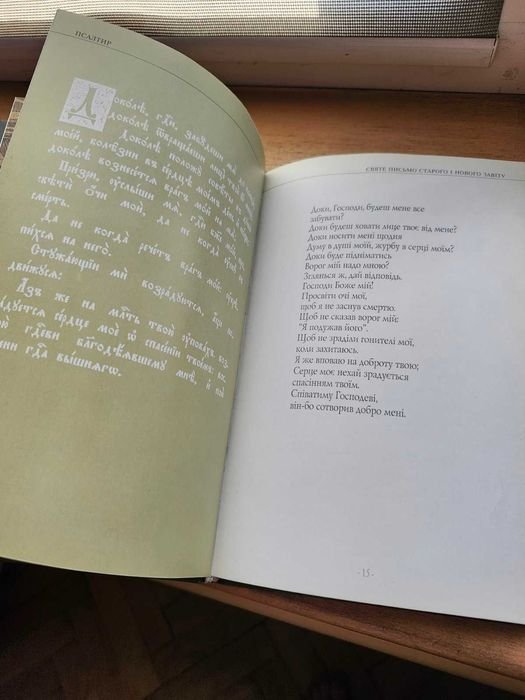 ПСАЛТИР
Доколѣ, гдⷭ҇и, забꙋдеши мѧ
доколѣ ѿвращаеши лице твоѐ
Доколѣ положꙋ
мое́й, болѣзни въ се́рдцѣ моемъ
доколѣ вознесетсѧ врагъ мой на мѧ
Призри, ᲂуслыши мѧ, гдⷭ҇и бж҃е мой
свѣти ѻчи мои, да не когда
смерть.
Да не когда речетъ врагъ мой:
на него.
Стꙋжающіи ми возрадꙋютсѧ, аще
подвижꙋсѧ:
Азъ же на млⷭ҇ть твою ᲂуповахъ
сердце мое ѡ спасеніи твоемъ:
гдⷭ҇еви благодѣѧвшемꙋ мнѣ, и пою
гдⷭ҇а вышнѧгѡ.
СВЯТЕ ПИСЬМО СТАРОГО І НОВОГО ЗАВІТУ
Доки, Господи, будеш мене все
забувати?
Доки будеш ховати лице твоє від мене?
Доки носити мені щодня
Думу в душі моїй, журбу в серці моїм?
Доки буде підніматись
Ворог мій надо мною?
Зглянься ж, дай відповідь.
Господи Боже мій!
Просвіти очі мої,
щоб я не заснув смертю.
Щоб не сказав ворог мій:
"Я подужав його".
Щоб не зраділи гонителі мої,
коли захитаюсь.
Я же вповаю на доброту твою;
Серце моє нехай зрадується
спасінням твоїм.
Співатиму Господеві,
він-бо сотворив добро мені.
-15-